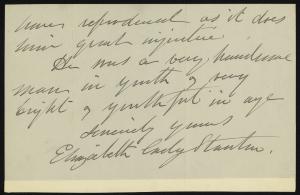 never reproduced as it does
him great injustice.
He was a very handsome
man in youth & very
bright & youthful in age
Sincerely yours
Elizabeth Cady Stanton.